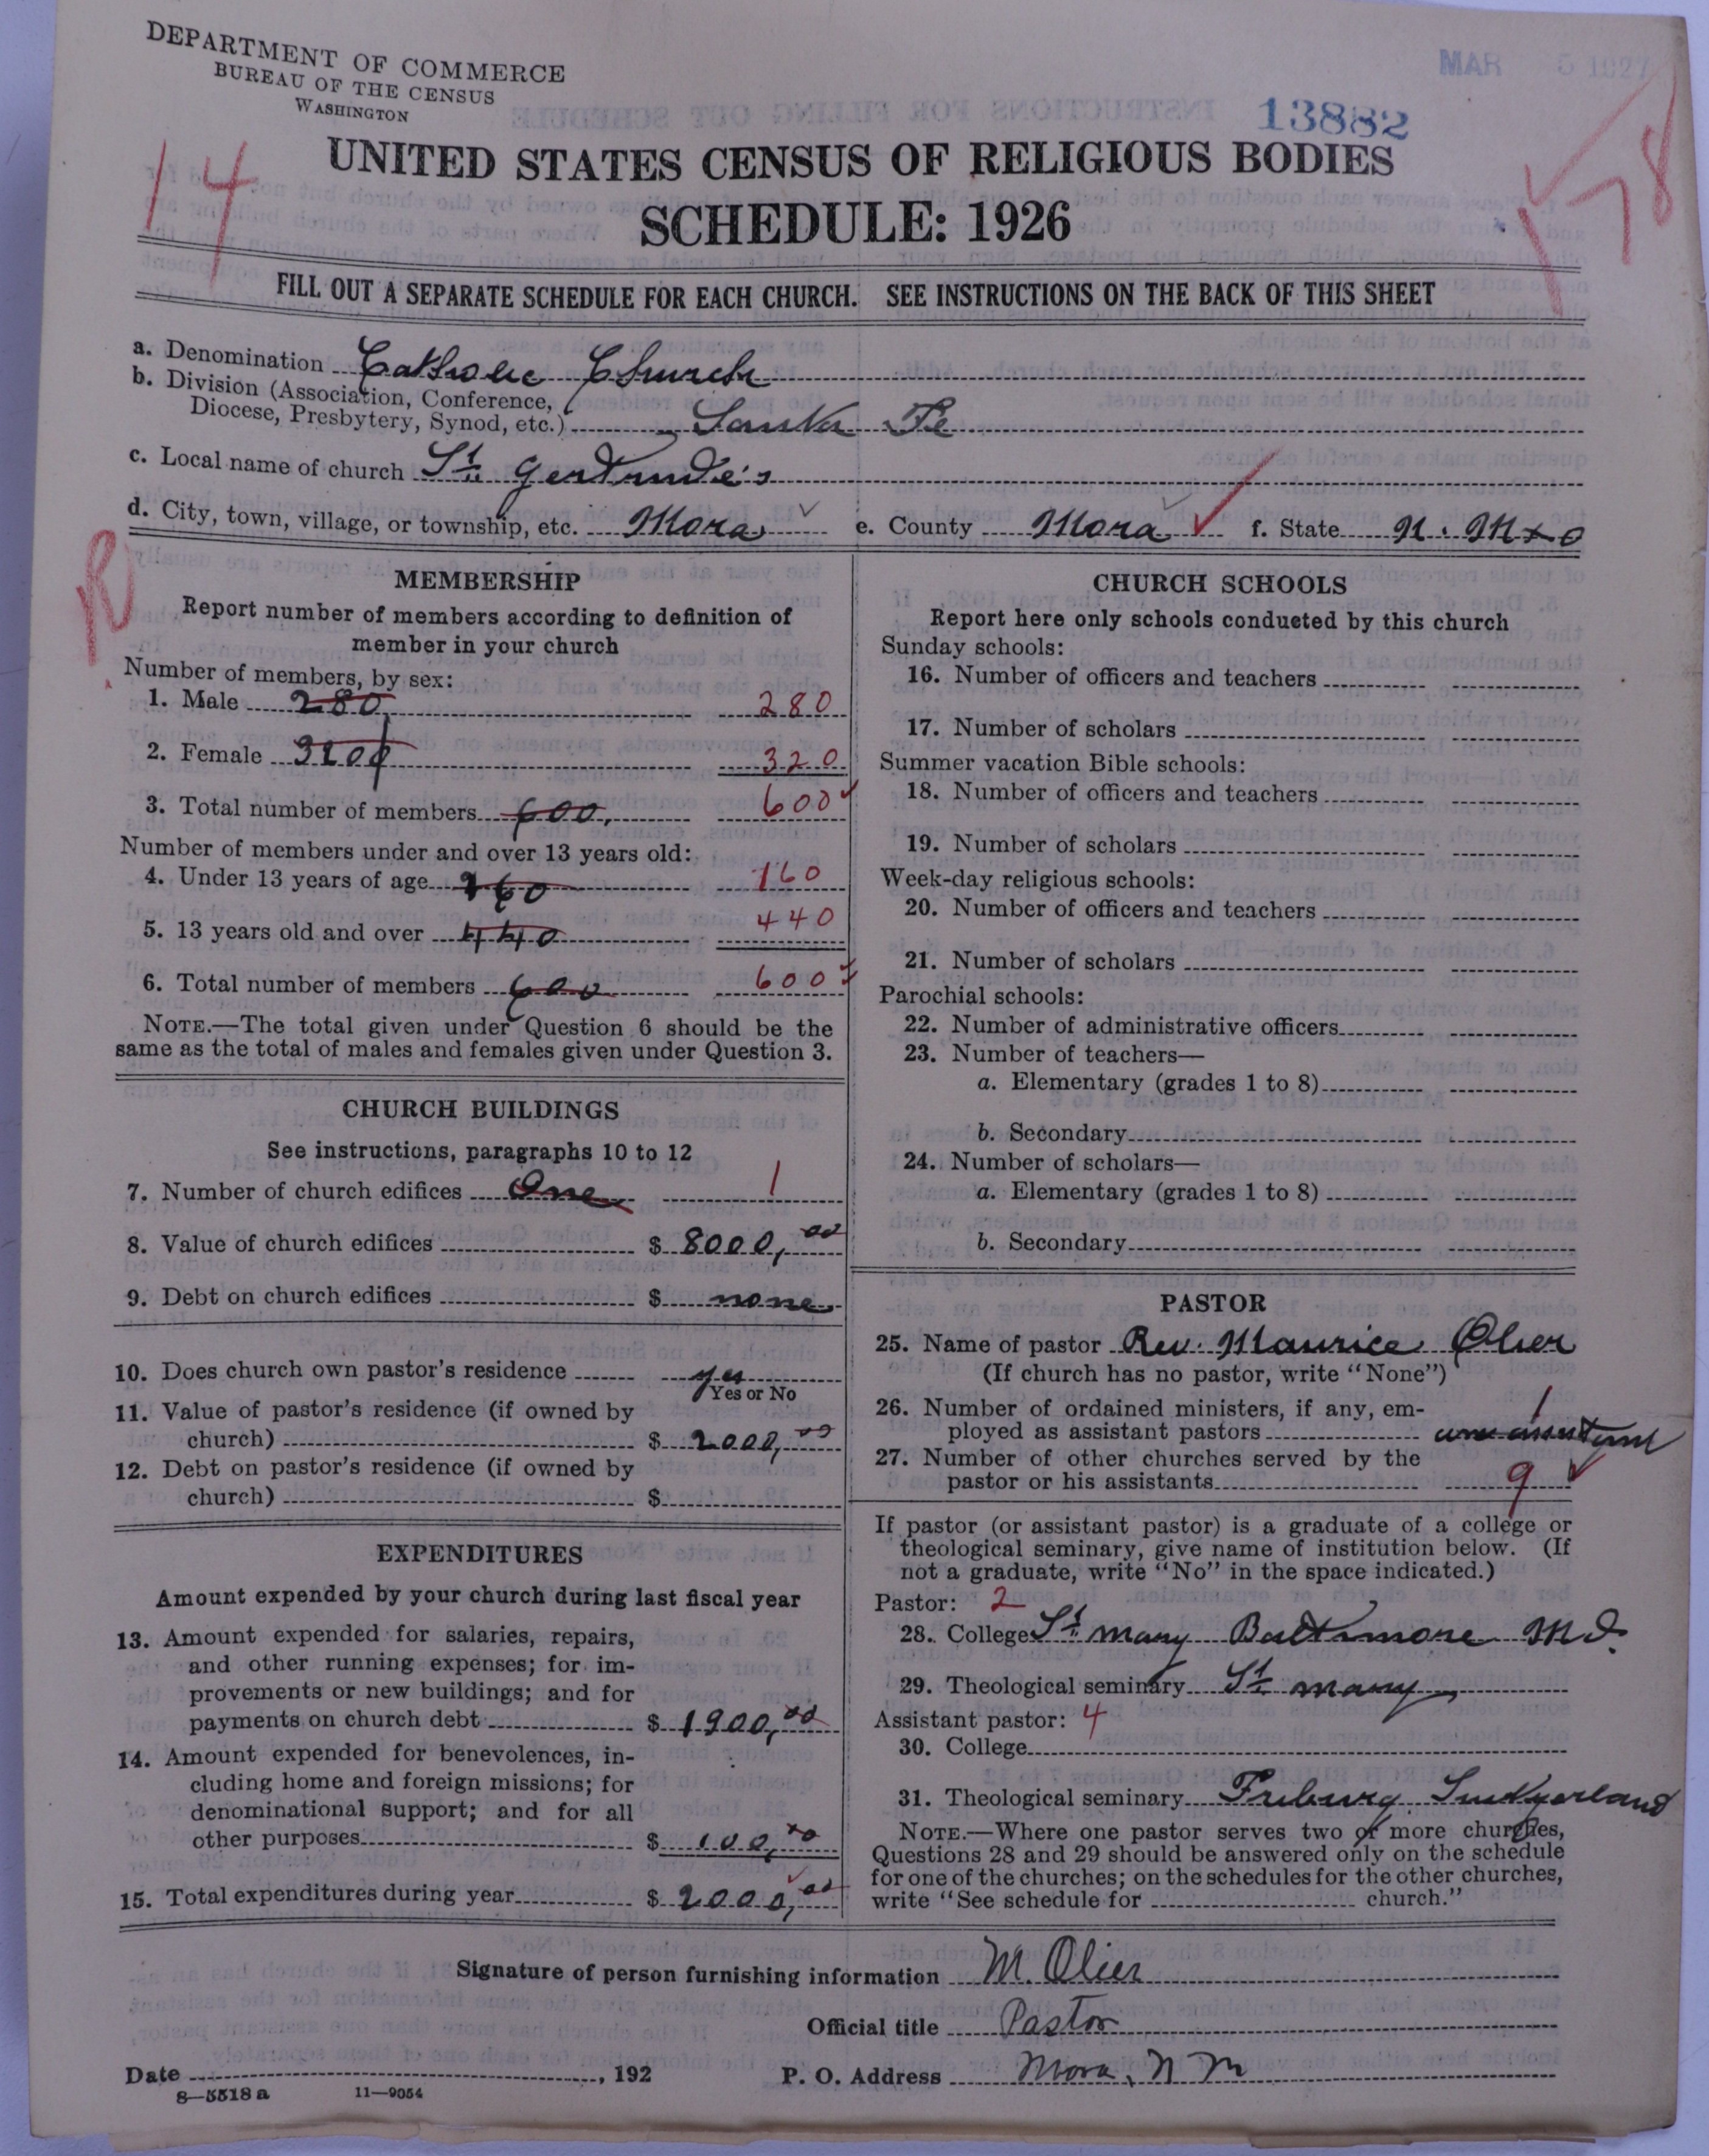 DEPARTMENT OF COMMERCE
BUREAU OF THE CENSUS
WASHINGTON
MAR 5 1927
13882
14
UNITED STATES CENSUS OF RELIGIOUS BODIES
SCHEDULE: 1926
FILL OUT A SEPARATE SCHEDULE FOR EACH CHURCH. SEE INSTRUCTIONS ON THE BACK OF THIS SHEET
a. Denomination Catholic Church
b. Division (Association, Conference,
Diocese, Presbytery, Synod, etc.) Santa Fe
c. Local name of church St. Gertrude's
d. City, town, village, or township, etc. Mora e. County Mora f. State N. Mxo
R
MEMBERSHIP
Report number of members according to definition of
member in your church
Number of members, by sex:
1. Male 280 280
2. Female 320 320
3. Total number of members 600, 600
Number of members under and over 13 years old:
4. Under 13 years of age 160 160
5. 13 years old and over 440 440
6. Total number of members 600 600
NOTE.—The total given under Question 6 should be the
same as the total of males and females given under Question 3.
CHURCH BUILDINGS
See instructions, paragraphs 10 to 12
7. Number of church edifices One 1
8. Value of church edifices $ 8000,00
9. Debt on church edifices $ none
10. Does church own pastor's residence yes
Yes or No
11. Value of pastor's residence (if owned by
church) $ 2000,00
12. Debt on pastor's residence (if owned by
church) $
EXPENDITURES
Amount expended by your church during last fiscal year
13. Amount expended for salaries, repairs,
and other running expenses; for im-
provements or new buildings; and for
payments on church debt $ 1900,00
14. Amount expended for benevolences, in-
cluding home and foreign missions; for
denominational support; and for all
other purposes $ 100,00
15. Total expenditures during year $ 2000,00
CHURCH SCHOOLS
Report here only schools conducted by this church
Sunday schools:
16. Number of officers and teachers
17. Number of scholars
Summer vacation Bible schools:
18. Number of officers and teachers
19. Number of scholars
Week-day religious schools:
20. Number of officers and teachers
21. Number of scholars
Parochial schools:
22. Number of administrative officers
23. Number of teachers—
a. Elementary (grades 1 to 8)
b. Secondary
24. Number of scholars—
a. Elementary (grades 1 to 8)
b. Secondary
PASTOR
25. Name of pastor Rev. Maurice Olier
(If church has no pastor, write "None")
26. Number of ordained ministers, if any, em- 1
ployed as assistant pastors one assistant
27. Number of other churches served by the
pastor or his assistants 9
If pastor (or assistant pastor) is a graduate of a college or
theological seminary, give name of institution below. (If
not a graduate, write "No" in the space indicated.)
Pastor: 2
28. College St. Mary Baltimore Md.
29. Theological seminary St. Mary
Assistant pastor: 4
30. College
31. Theological seminary Friburg Switzerland
NOTE.—Where one pastor serves two or more churches,
Questions 28 and 29 should be answered only on the schedule
for one of the churches; on the schedules for the other churches,
write "See schedule for church."
Signature of person furnishing information M. Olier
Official title Pastor
Date , 192 P. O. Address Mora, N M
8—5518 a 11—9054